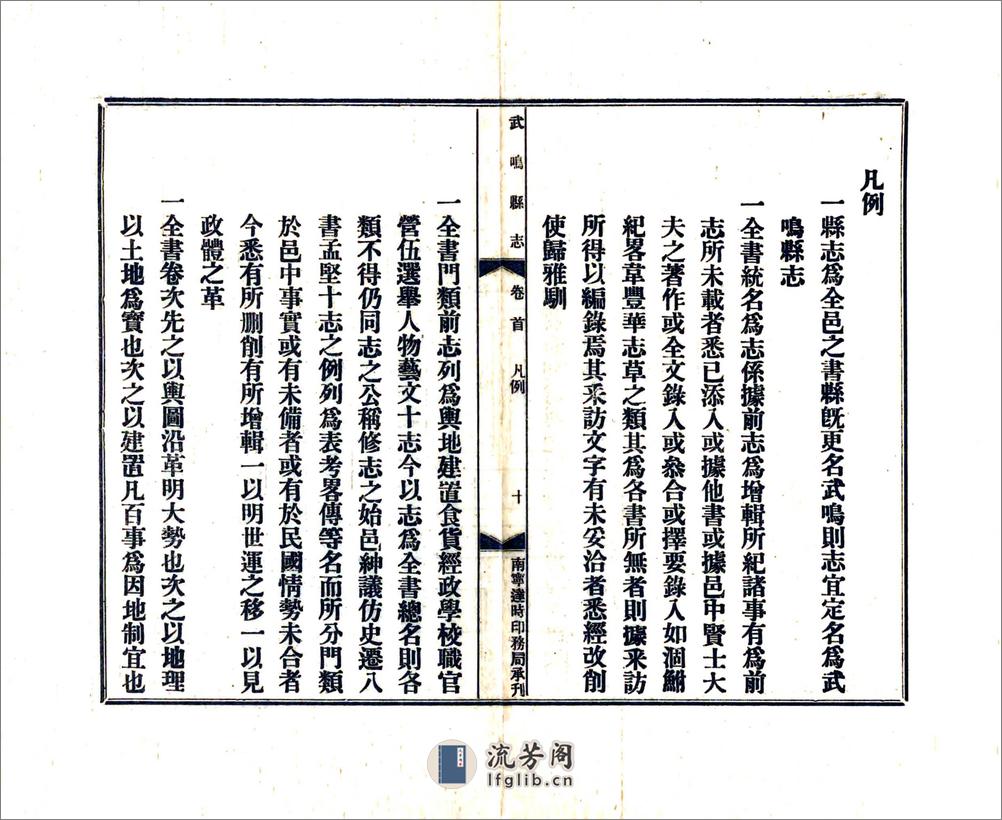 凡例
一縣志爲全邑之書縣旣更名武鳴則志宜定名爲武
鳴縣志
一全書統名爲志係據前志爲增輯所紀諸事有爲前
志所未載者悉已添入或據他書或據邑中賢士大
夫之著作或全文錄入或叅合或擇要錄入如涸鮒
紀畧韋豐華志草之類其爲各書所無者則據釆訪
所得以編錄焉其釆訪文字有未妥洽者悉經改削
使歸雅馴
武鳴縣志
卷首
凡例
十
南寧達時印務局承刋
一全書門類前志列爲輿地建置食貨經政學校職官
營伍選舉人物藝文十志今以志爲全書總名則各
類不得仍同志之公稱修志之始邑紳議仿史遷八
書孟堅十志之例列爲表考畧傳等名而所分門類
於邑中事實或有未備者或有於民國情勢未合者
今悉有所删削有所增輯一以明世運之移一以見
政體之革
一全書卷次先之以輿圖沿革明大勢也次之以地理
以土地爲寶也次之以建置凡百事爲因地制宜也
流芳阁
lfglib.cn